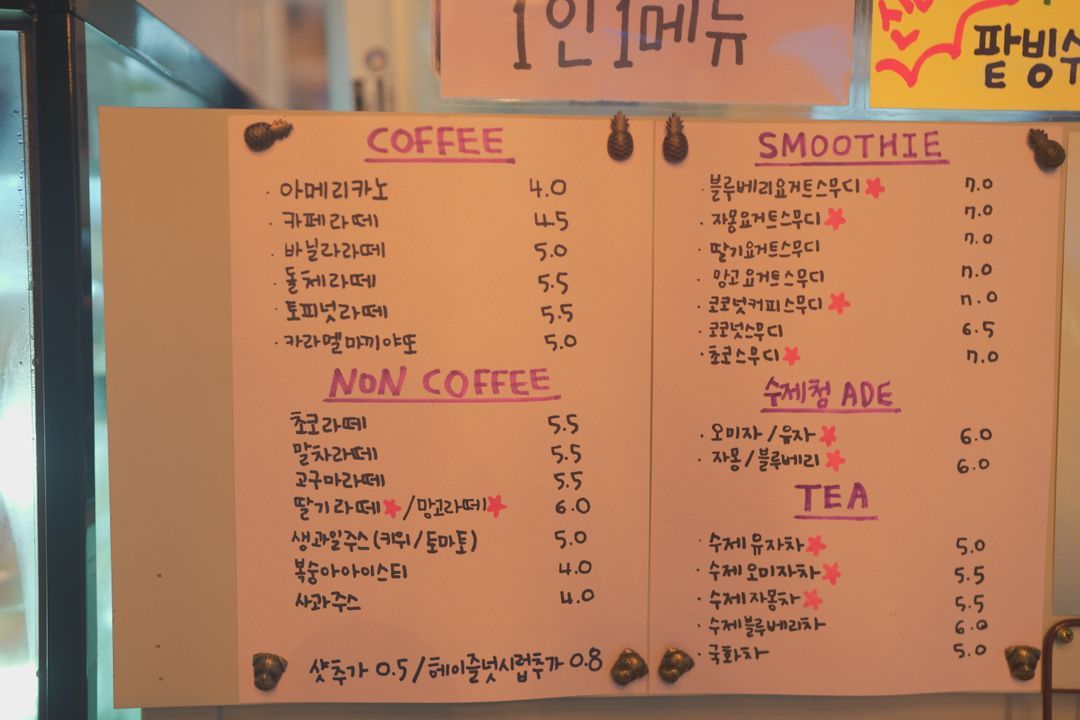 1인 1메뉴
팥빙수
COFFEE
· 아메리카노 4.0
· 카페라떼 4.5
· 바닐라라떼 5.0
· 돌체라떼 5.5
· 토피넛라떼 5.5
· 카라멜마끼야또 5.0
NON COFFEE
초코라떼 5.5
말차라떼 5.5
고구마라떼 5.5
딸기라떼 / 망고라떼 6.0
생과일주스(키위/토마토) 5.0
복숭아아이스티 4.0
사과주스 4.0
샷추가 0.5 / 헤이즐넛시럽추가 0.8
SMOOTHIE
· 블루베리요거트스무디 7.0
· 자몽요거트스무디 7.0
· 딸기요거트스무디 7.0
· 망고요거트스무디 7.0
· 코코넛커피스무디 7.0
· 코코넛스무디 6.5
· 초코스무디 7.0
수제청 ADE
· 오미자 / 유자 6.0
· 자몽 / 블루베리 6.0
TEA
· 수제유자차 5.0
· 수제오미자차 5.5
· 수제자몽차 5.5
· 수제블루베리차 6.0
· 국화차 5.0